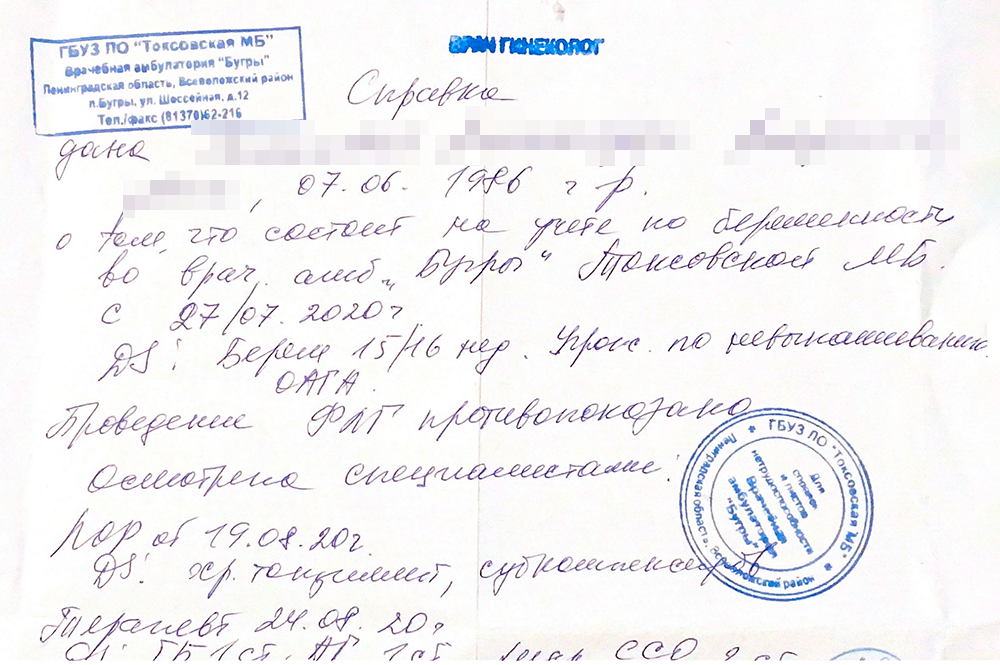 ГБУЗ ЛО "Токсовская МБ"
Врачебная амбулатория "Бугры"
Ленинградская область, Всеволожский район
п.Бугры, ул. Шоссейная, д.12
Тел./факс (81370)62-216
ВРАЧ ГИНЕКОЛОГ
Справка
дана
, 07.06. 1986 г р.
о том, что состоит на учете по беременности
во врач. амб. „Бугры" Токсовской МБ.
с 27/07. 2020г
DS: Берем 15/16 нед. Угрож. по невынашиванию.
ОАГА.
Проведение ФЛГ противопоказано
Осмотрена специалистами:
ГБУЗ ЛО "Токсовская МБ"
Ленинградская область, Всеволожский район
Для
справок
и листов
нетрудоспособности
Врачебная
амбулатория
"Бугры"
ЛОР от 19.08.20г.
DS: хр. тонзиллит, субкомпенсиров
Терапевт 24.08.20г
ГБ 1 ст. АГ 1 ст. ССО 2 ст.